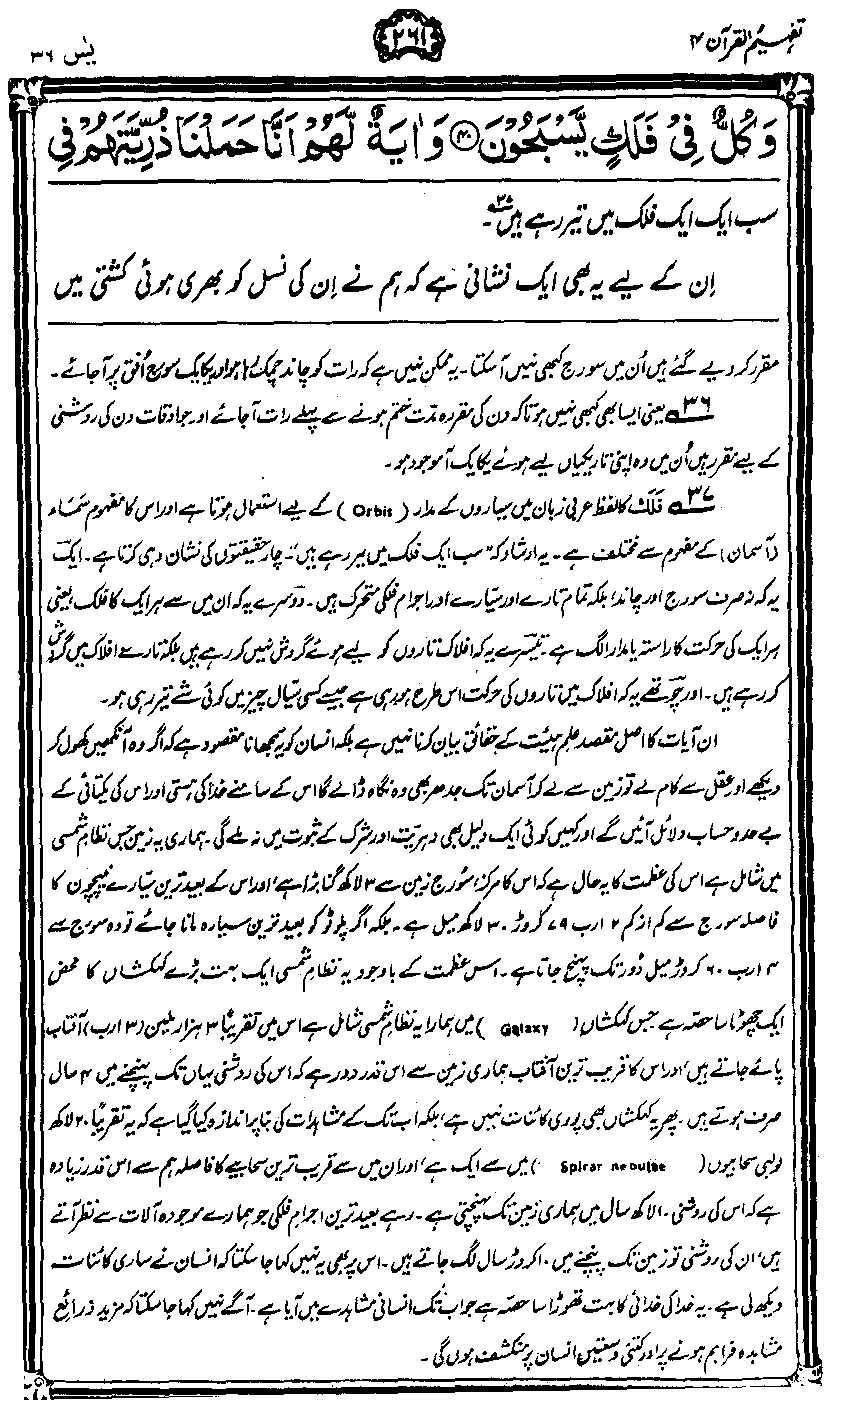 تفہیم القرآن ۴
۲۶۱
یٰس ۳۶
وَكُلٌّ فِیْ فَلَكٍ یَّسْبَحُوْنَ ﴿۴۰﴾ وَاٰیَةٌ لَّهُمْ اَنَّا حَمَلْنَا ذُرِّیَّتَهُمْ فِی
سب ایک ایک فلک میں تیر رہے ہیں۳۷۔
اِن کے لیے یہ بھی ایک نشانی ہے کہ ہم نے اِن کی نسل کو بھری ہوئی کشتی میں
مقرر کر دیے گئے ہیں اُن میں سورج کبھی نہیں آ سکتا۔ یہ ممکن نہیں ہے کہ رات کو چاند چمک رہا ہو اور یکایک سورج اُفق پر آ جائے۔
۳۶ یعنی ایسا بھی کبھی نہیں ہوتا کہ دن کی مقررہ مدت ختم ہونے سے پہلے رات آ جائے اور جو اوقات دن کی روشنی
کے لیے مقرر ہیں اُن میں وہ اپنی تاریکیاں لیے ہوئے یکایک آ موجود ہو۔
۳۷ فَلَک کا لفظ عربی زبان میں سیاروں کے مدار (Orbis) کے لیے استعمال ہوتا ہے اور اس کا مفہوم سَمَاء
(آسمان) کے مفہوم سے مختلف ہے۔ یہ ارشاد کہ "سب ایک فلک میں تیر رہے ہیں"۔ چار حقیقتوں کی نشان دہی کرتا ہے۔ ایک
یہ کہ نہ صرف سورج اور چاند، بلکہ تمام تارے اور سیّارے اور اجرام فلکی متحرک ہیں۔ دوسرے یہ کہ ان میں سے ہر ایک کا فلک، یعنی
ہر ایک کی حرکت کا راستہ یا مدار الگ ہے۔ تیسرے یہ کہ افلاک تاروں کو لیے ہوئے گردش نہیں کر رہے ہیں بلکہ تارے افلاک میں گردش
کر رہے ہیں۔ اور چوتھے یہ کہ افلاک میں تاروں کی حرکت اس طرح ہو رہی ہے جیسے کسی سیّال چیز میں کوئی شے تیر رہی ہو۔
ان آیات کا اصل مقصد علم ہیئت کے حقائق بیان کرنا نہیں ہے بلکہ انسان کو یہ سمجھانا مقصود ہے کہ اگر وہ آنکھیں کھول کر
دیکھے اور عقل سے کام لے تو زمین سے لے کر آسمان تک جدھر بھی وہ نگاہ ڈالے گا اس کے سامنے خدا کی ہستی اور اس کی یکتائی کے
بے حد و حساب دلائل آئیں گے اور کہیں کوئی ایک دلیل بھی دہریّت اور شرک کے ثبوت میں نہ ملے گی۔ ہماری یہ زمین جس نظامِ شمسی
میں شامل ہے اس کی عظمت کا یہ حال ہے کہ اس کا مرکز، سورج زمین سے ۳ لاکھ گنا بڑا ہے، اور اس کے بعید ترین سیّارے نیپچون کا
فاصلہ سورج سے کم از کم ۲ ارب ۷۹ کروڑ ۳۰ لاکھ میل ہے۔ بلکہ اگر پلوٹو کو بعید ترین سیارہ مانا جائے تو وہ سورج سے
۴ ارب ۶۰ کروڑ میل دُور تک پہنچ جاتا ہے۔ اس عظمت کے باوجود یہ نظامِ شمسی ایک بہت بڑے کہکشاں کا محض
ایک چھوٹا سا حصّہ ہے جس کہکشاں (Galaxy) میں ہمارا یہ نظامِ شمسی شامل ہے اس میں تقریبًا ۳ ہزار ملین (۳ ارب) آفتاب
پائے جاتے ہیں، اور اس کا قریب ترین آفتاب ہماری زمین سے اس قدر دور ہے کہ اس کی روشنی یہاں تک پہنچنے میں ۴ سال
صرف ہوتے ہیں۔ پھر یہ کہکشاں بھی پوری کائنات نہیں ہے، بلکہ اب تک کے مشاہدات کی بنا پر اندازہ کیا گیا ہے کہ یہ تقریبًا ۲۰ لاکھ
لولبی سحابیوں (Spirar nebulae) میں سے ایک ہے، اور ان میں سے قریب ترین سحابیے کا فاصلہ ہم سے اس قدر زیادہ
ہے کہ اس کی روشنی ۱۰ لاکھ سال میں ہماری زمین تک پہنچتی ہے۔ رہے بعید ترین اجرام فلکی جو ہمارے موجودہ آلات سے نظر آتے
ہیں، ان کی روشنی تو زمین تک پہنچنے میں ۱۰ کروڑ سال لگ جاتے ہیں۔ اس پر بھی یہ نہیں کہا جا سکتا کہ انسان نے ساری کائنات
دیکھ لی ہے۔ یہ خدا کی خدائی کا بہت تھوڑا سا حصّہ ہے جو اب تک انسانی مشاہدے میں آیا ہے۔ آگے نہیں کہا جا سکتا کہ مزید ذرائع
مشاہدہ فراہم ہونے پر اور کتنی وسعتیں انسان پر منکشف ہوں گی۔